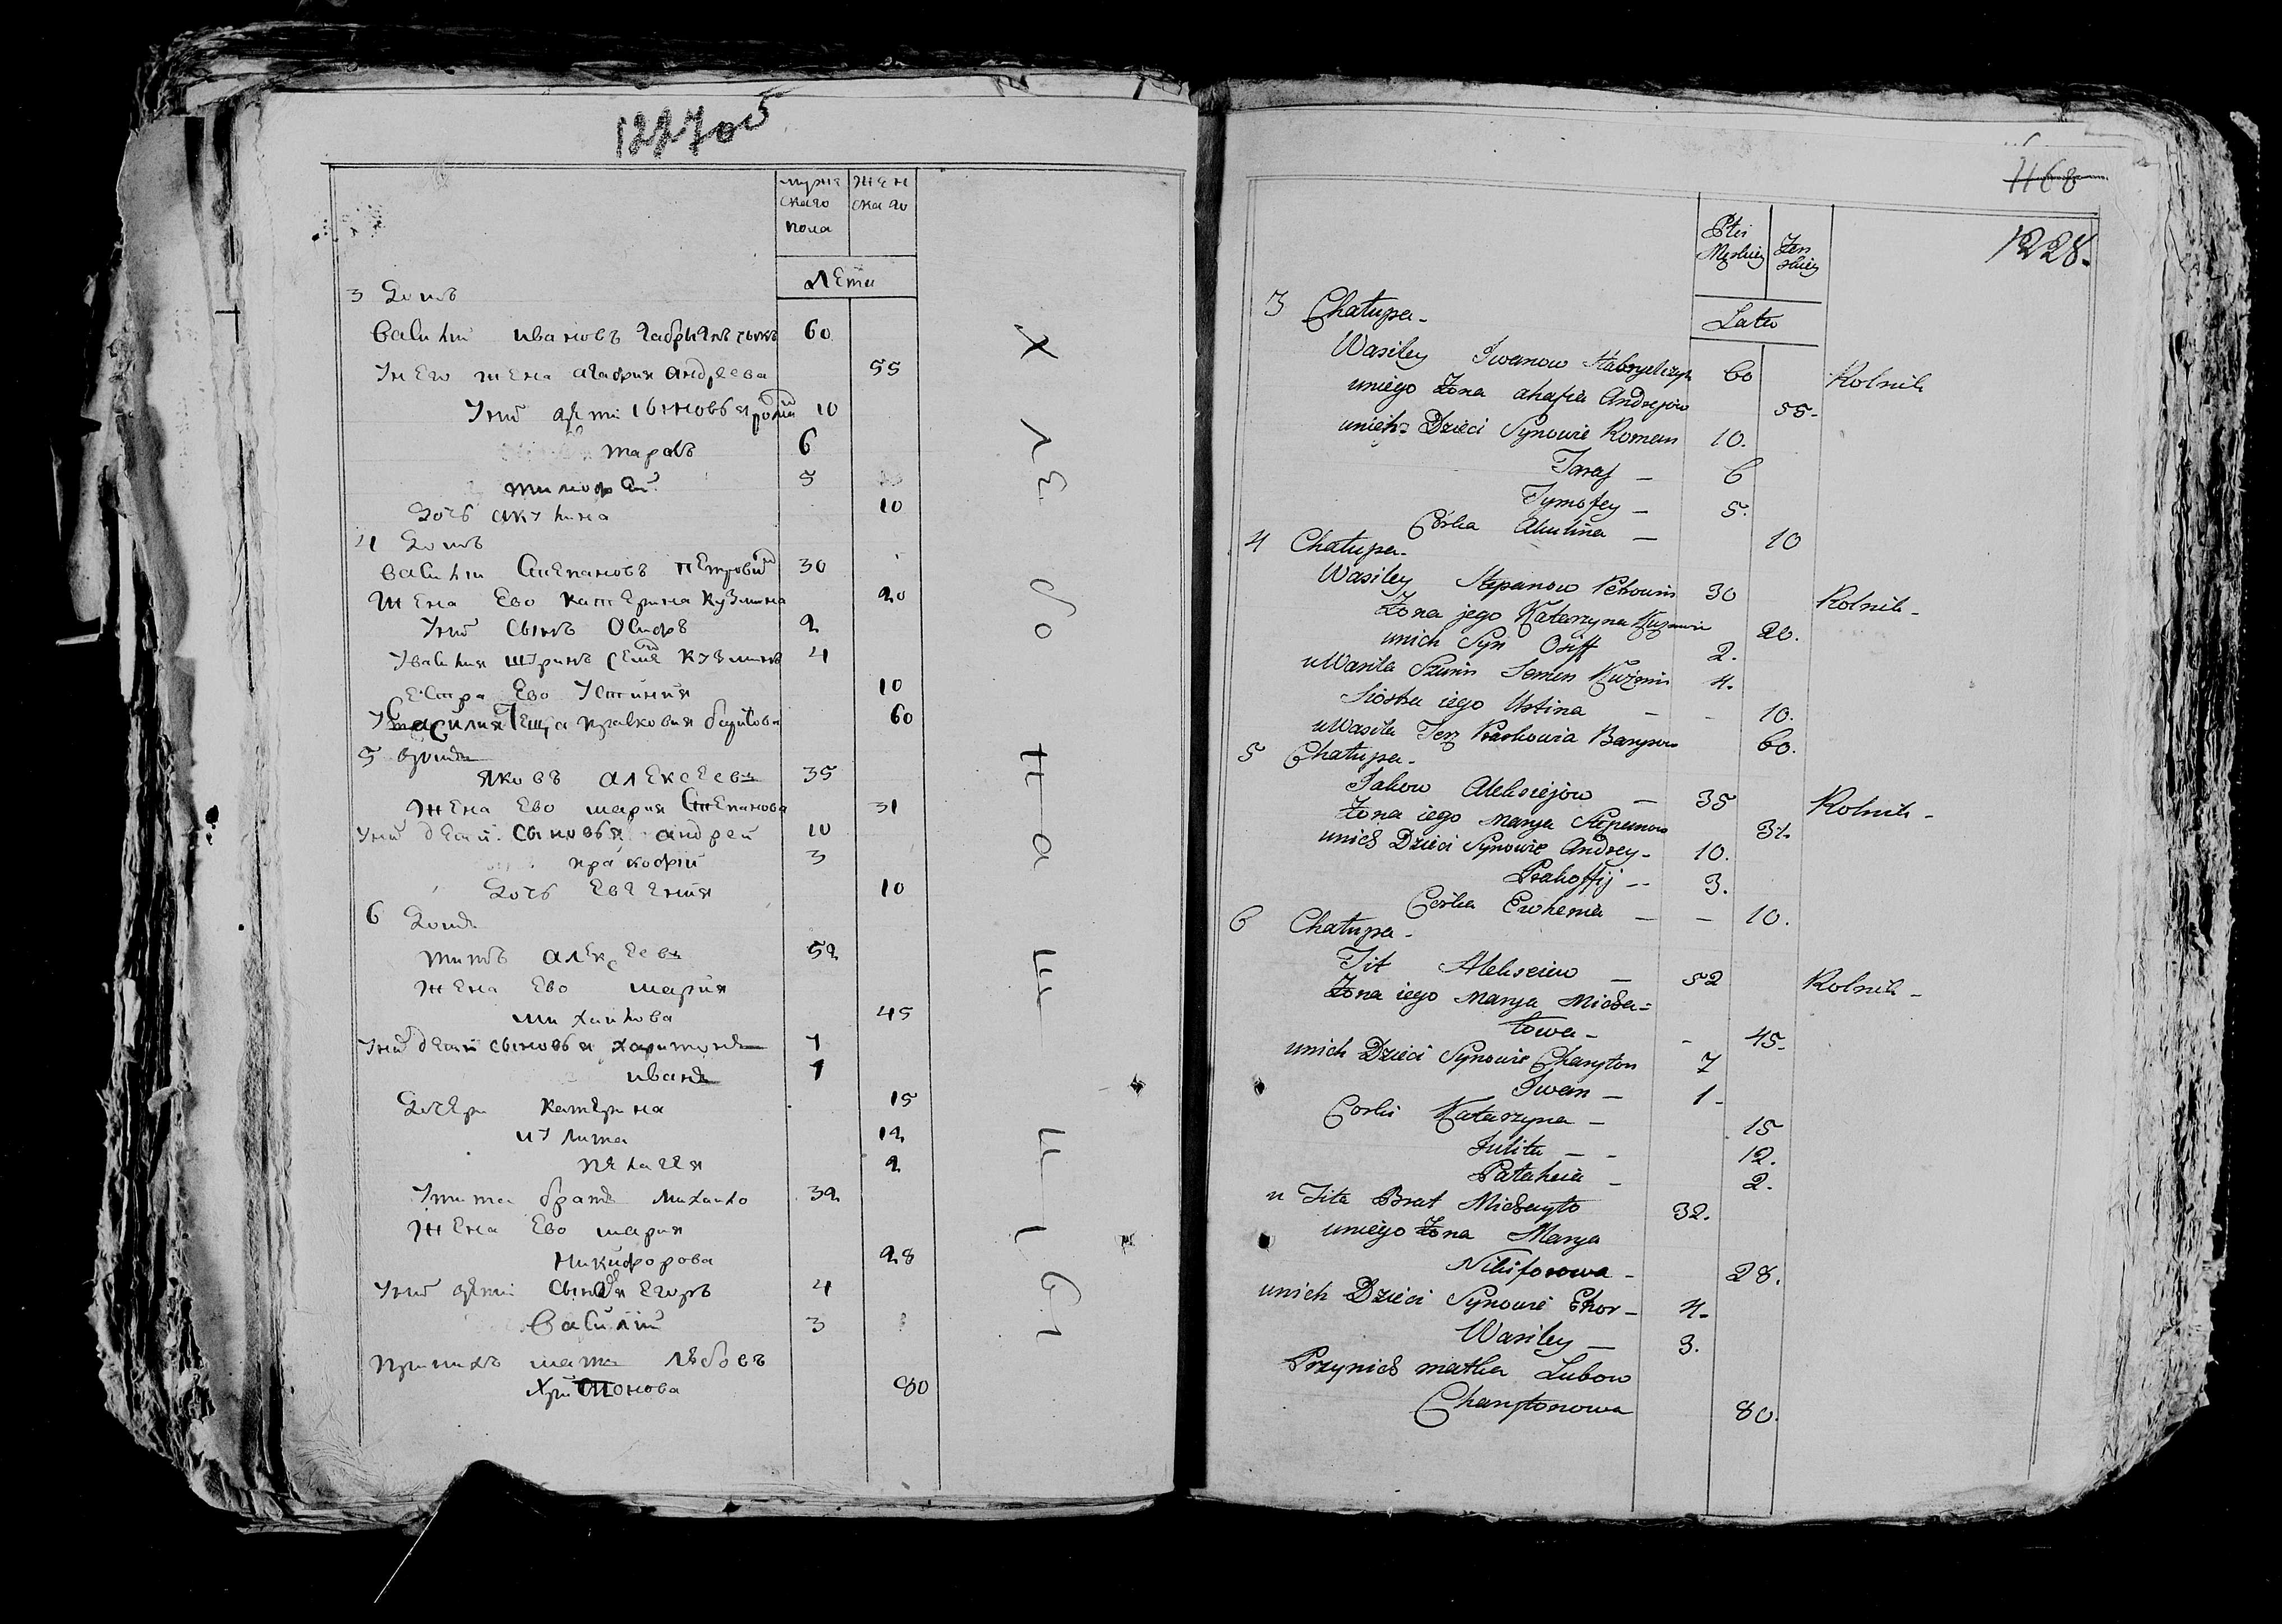 муже
скаго
пола
жен
скаго
лета
3 Домъ
Василий ивановъ Габрыялъчыкъ 60
У него жена агафия андреева 55
У них дети сыновья роман 10
тарасъ 6
тимофей 5
Дочь акулина 10
4 Домъ
Василий Степановъ петровин 30
жена Ево катерина кузмина 20
У них сынъ Осифъ 2
У василия шуринъ семен кузминъ 4
сестра Ево Устиния 10
У Василия Теща прасковия барисова 60
5
яковъ алексеевъ 35
жена Ево мария Степанова 31
У них дети сыновья андрей 10
пракофий 3
Дочь Евгения 10
6 Домъ
титъ алексеевъ 52
жена Ево мария
михайлова 45
У них дети сыновья харитонъ 7
иванъ 1
Дочери катерина 15
иулита 12
пелагея 2
У тита братъ михайло 32
жена Ево мария
Никифорова 28
У них дети сыновья Егоръ 4
Василий 3
при них мать любовъ
80
Хлебопашцы
1168
1228.
Płci
Męskiey
Żeń
skiey
Lata
3 Chałupa -
Wasiley Iwanow Habryelczyk 60 Rolnik
uniego Żona ahafia Andrejew 55 -
unich Dzieci Synowie Roman 10.
Taras - 6
Tymofey - 5.
Córka Akulina - 10
4 Chałupa -
Wasiley Stepanow Petrowin 30 Rolnik -
Żona jego Katarzyna Kuzmin 20.
unich Syn Osiff 2.
u Wasila Szurin Semen Kuźmin 4.
Siostra iego Ustina - - 10.
u Wasila Praskowia Barysow 60.
5 Chałupa -
Jakow Aleksiejow - 35 Rolnik -
Żona iego Marya Stepanow 31.
unich Dzieci Synowie Andrey - 10.
Prakoffij - 3.
Córka Ewhenia - - 10.
6 Chałupa -
Tit Alekseiew - 52 Rolnik -
Żona iego Marya Micha=
łowa - - 45 -
unich Dzieci Synowie Charyton 7
Iwan - 1 -
Corki Katarzyna - 15
Julita - - 12.
Pałahia - 2.
u Tita Brat Michayło 32.
uniego Żona Marya
Nikiforowa - 28.
unich Dzieci Synowie Ehor - 4.
Wasiley - 3.
Przynich matka Lubow
Charytonowa 80.